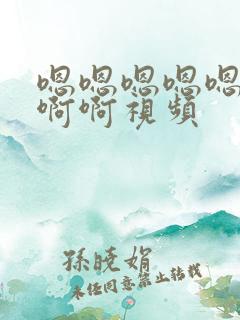 嗯嗯嗯嗯嗯
啊啊視頻
孫曉娟
未經同意禁止轉載